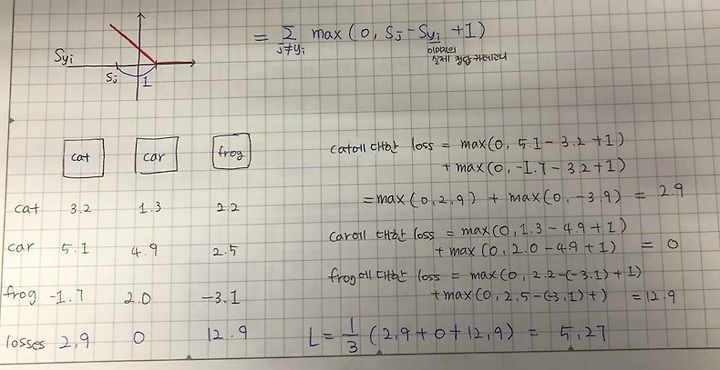 = Σ max(0, Sj - Syi + 1)
j≠yi
이미지의
실제 정답 카테고리
Syi
Sj
1
cat car frog
cat 3.2 1.3 2.2
car 5.1 4.9 2.5
frog -1.7 2.0 -3.1
losses 2.9 0 12.9
cat에 대한 loss = max(0, 5.1 - 3.2 + 1)
+ max(0, -1.7 - 3.2 + 1)
= max(0, 2.9) + max(0, -3.9) = 2.9
car에 대한 loss = max(0, 1.3 - 4.9 + 1)
+ max(0, 2.0 - 4.9 + 1) = 0
frog에 대한 loss = max(0, 2.2 - (-3.1) + 1)
+ max(0, 2.5 - (-3.1) + ) = 12.9
L = 1/3 (2.9 + 0 + 12.9) = 5.27